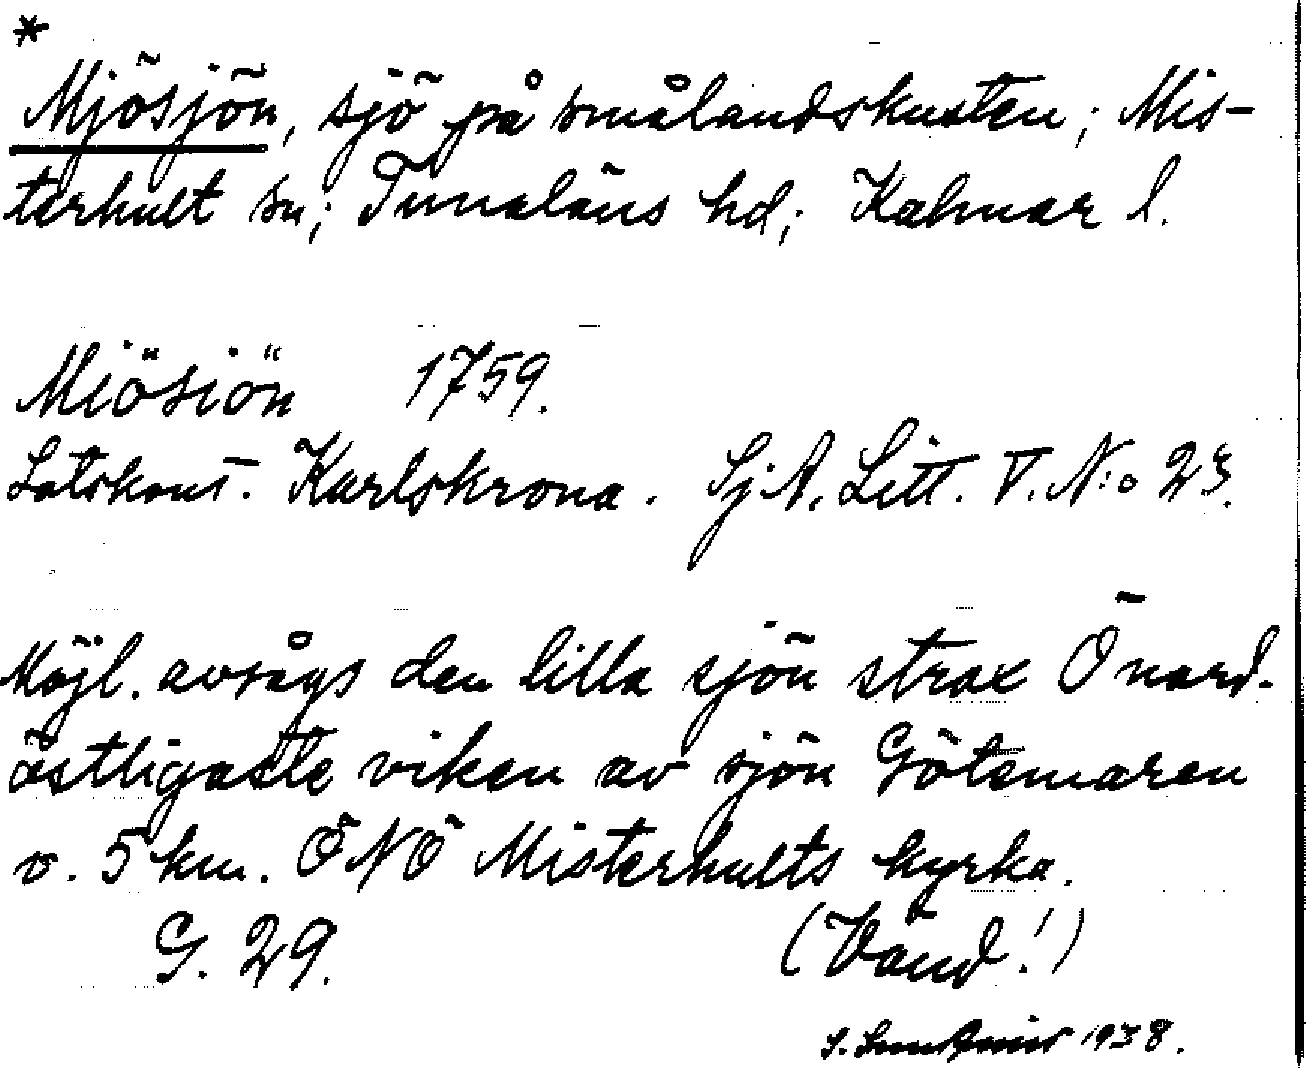 *
Mjösjön, sjö på smålandskusten; Mis-
terhult sn; Tunaläns hd; Kalmar l.
Miösiön 1759.
Lotskont. Karlskrona. SjA. Litt. V. N:o 23.
Möjl. avsågs den lilla sjön strax Ö nord-
östligaste viken av sjön Götemaren
v. 5 km. ÖNÖ Misterhults kyrka.
G. 29. (Vänd!)
1938.